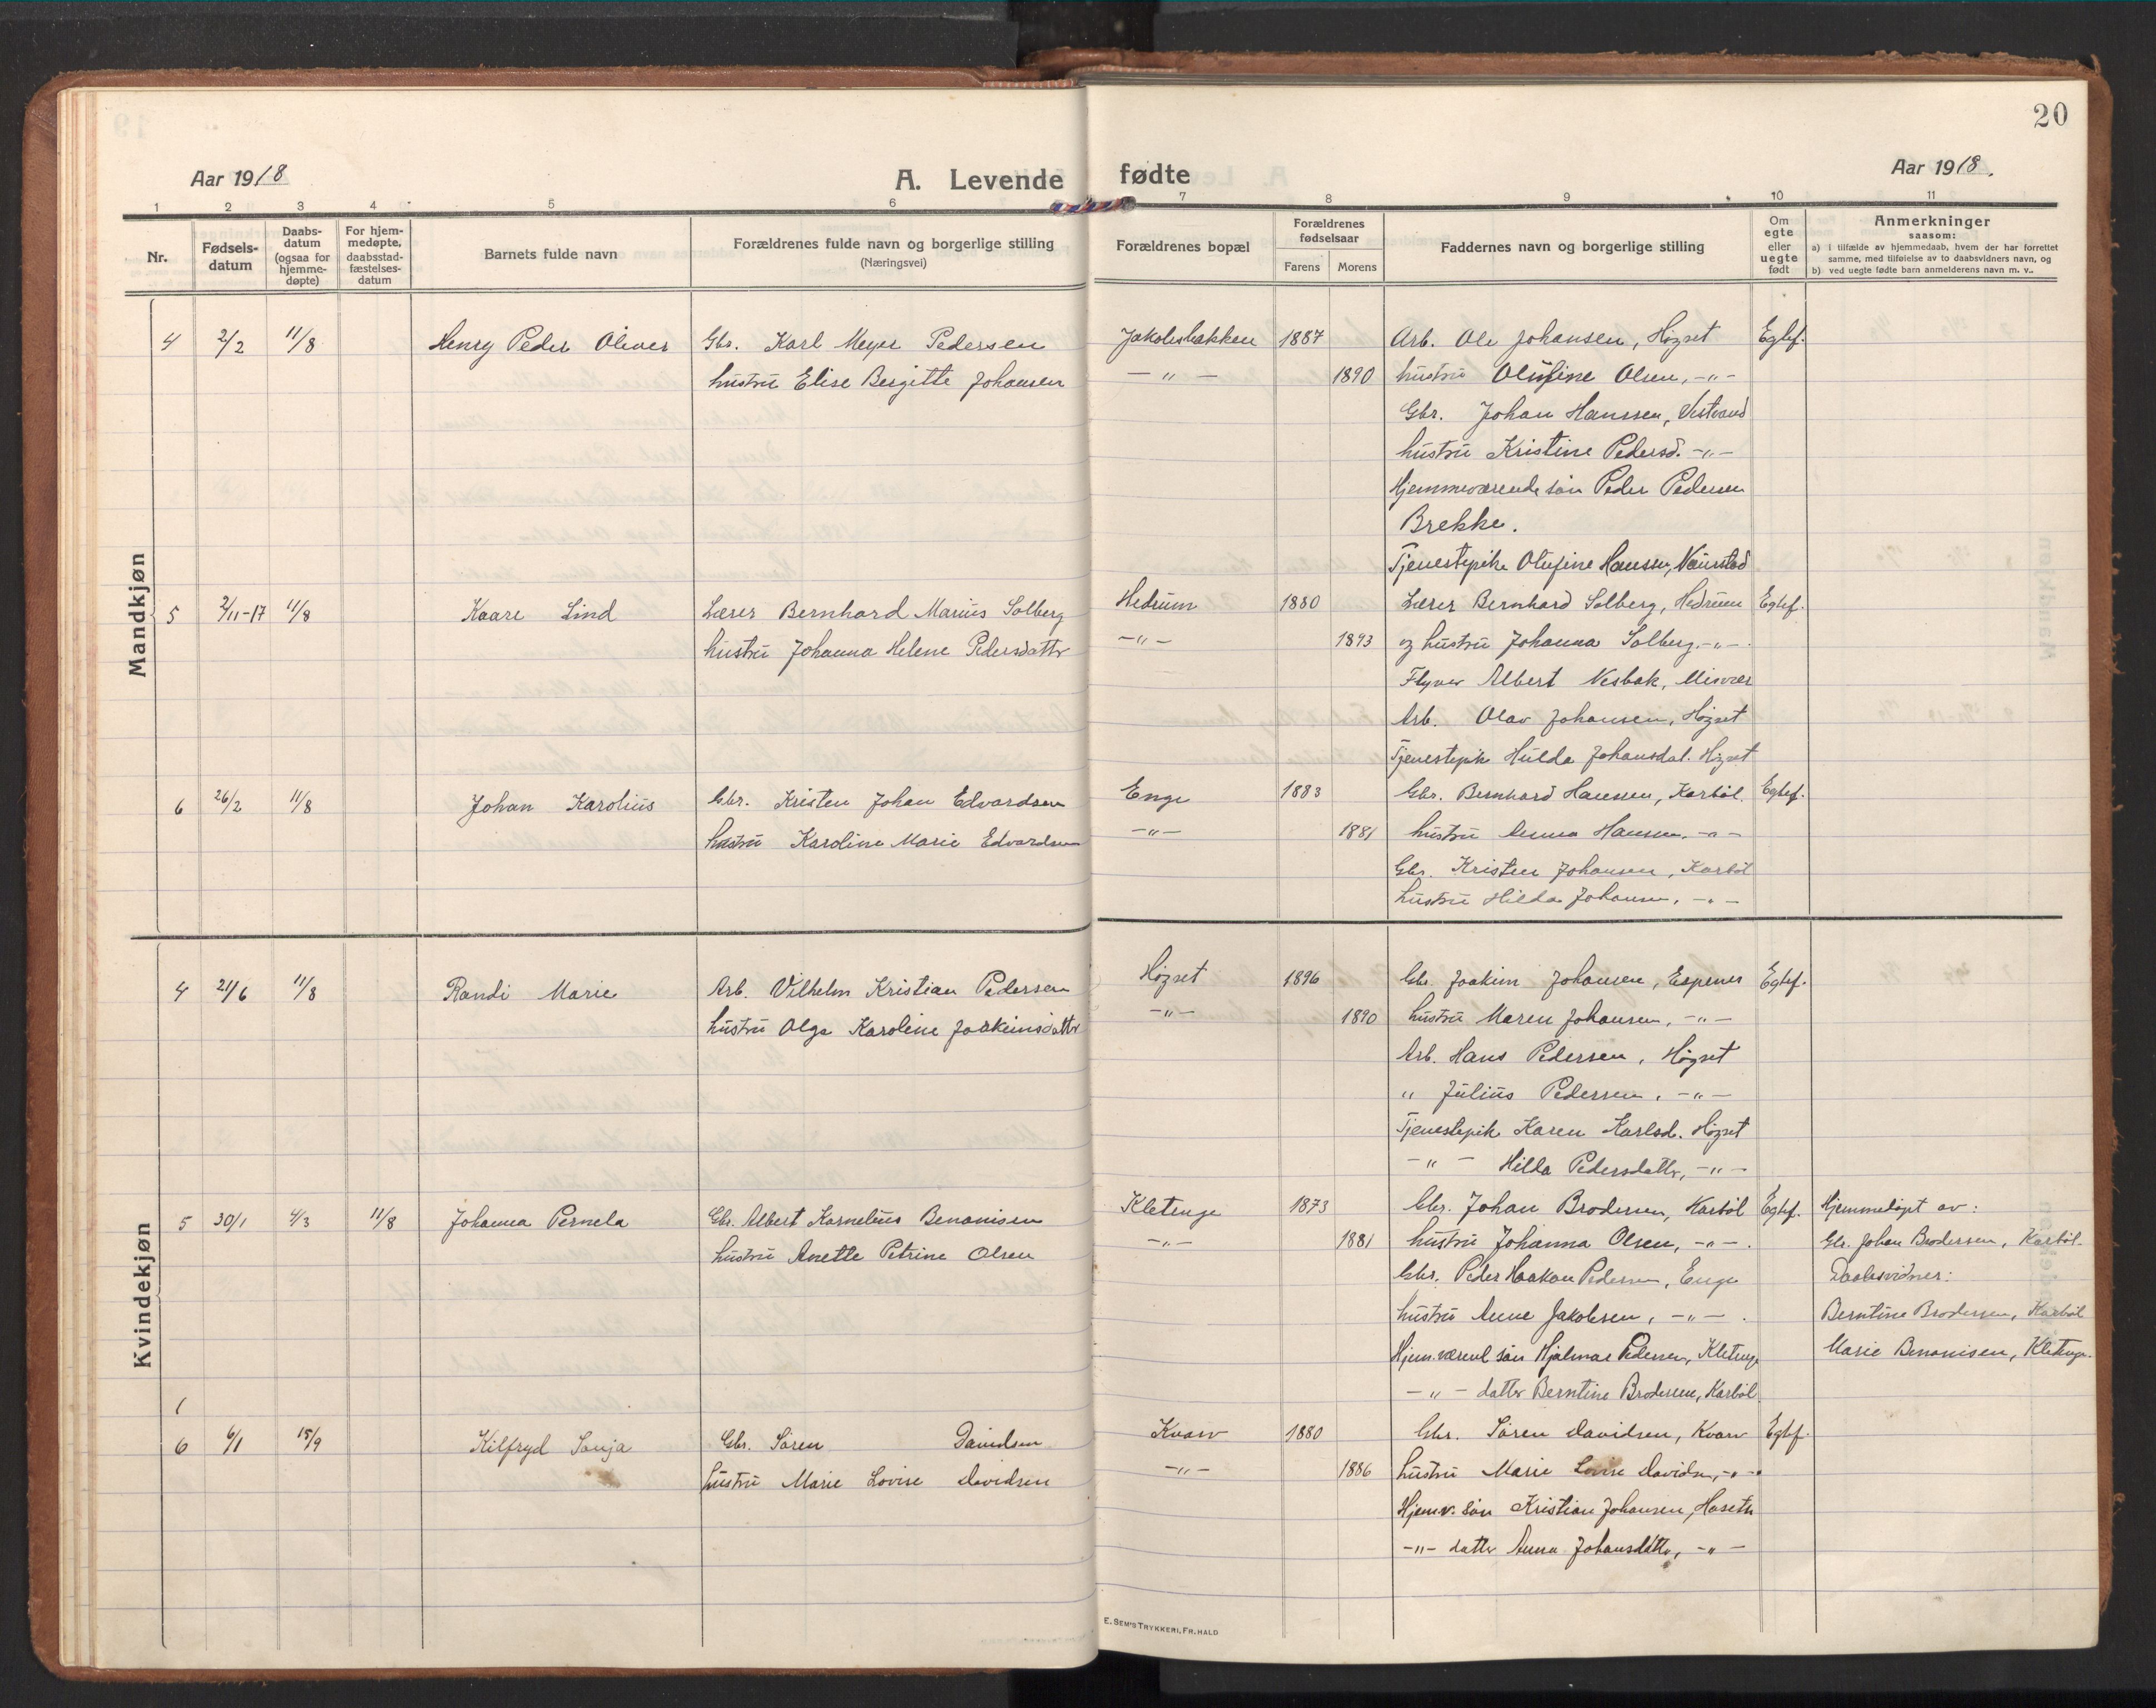 20
Aar 1918
A. Levende fødte
Aar 1918.
1 2 3 4 5 6 7 8 9 10 11
Nr.
Fødsels-
datum
Daabs-
datum
(ogsaa for
hjemme-
døpte)
For hjem-
medøpte,
daabsstad-
fæstelses-
datum
Barnets fulde navn
Forældrenes fulde navn og borgerlige stilling
(Næringsvei)
Forældrenes bopæl
Forældrenes
fødselsaar
Farens Morens
Faddernes navn og borgerlige stilling
Om
egte
eller
uegte
født
Anmerkninger
saasom:
a) i tilfælde av hjemmedaab, hvem der har forrettet
samme, med tilføielse av to daabsvidners navn, og
b) ved uegte fødte barn anmelderens navn m. v..
Mandkjøn
4 2/2 11/8 Henry Peder Oliver Gbr. Karl Meyer Pedersen Jakobsbakken 1887 Arb. Ole Johansen, Høgset Egtef.
hustru Elise Bergitte Johansen -"- 1890 hustru Olufine Olsen, -"-
Gbr. Johan Hanssen, Vestvand
hustru Kristine Pedersd. -"-
Hjemmeværende søn Peder Pedersen
Brekke.
Tjenestepike Olufine Hansen, Naurstad
5 2/11-17 11/8 Kaare Lind Lærer Bernhard Marius Solberg Hedrum 1880 Lærer Bernhard Solberg, Hedrum Egtef.
hustru Johanna Helene Pedersdattr -"- 1893 og hustru Johanna Solberg. -"-
Flyver Albert Nesbak, Misvær
Arb. Olav Johansen, Høgset
Tjenestepik Hulda Johansdat. Høgset
6 26/2 11/8 Johan Karolius Gbr. Kristen Johan Edvardsen Enge 1883 Gbr. Bernhard Hansen, Karbøl. Egtef.
hustru Karoline Marie Edvardsen -"- 1881 hustru Anna Hansen. -"-
Gbr. Kristen Johansen, Karbøl
hustru Hilda Johansen, -"-
Kvindekjøn
4 21/6 11/8 Randi Marie Arb. Vilhelm Kristian Pedersen Høgset 1896 Gbr. Joakim Johansen, Espenes Egtef.
hustru Olga Karoline Joakimsdattr -"- 1890 hustru Maren Johansen, -"-
Arb. Hans Pedersen, Høgset
" Julius Pedersen, -"-
Tjenestepik Karen Karlsd. Høgset
-"- Hilda Pedersdattr, -"-
5 30/1 4/3 11/8 Johanna Pernela Gbr. Albert Kornelius Benonisen Kletenge 1873 Gbr. Johan Brodersen, Karbøl Egtef. Hjemmedøpt av:
hustru Anette Petrine Olsen -"- 1881 hustru Johanna Olsen, -"-. Gbr. Johan Brodersen, Karbøl.
Gbr. Peder Haakon Pedersen, Enge Daabsvidner:
hustru Anne Jakobsen, -"-. Berntine Brodersen, Karbøl
Hjem.værend søn Hjalmar Pedersen, Kletenge Marie Benonisen, Kletenge.
-"- dattr Berntine Brodersen, Karbøl
1
6 6/1 15/9 Kilfryd Sonja Gbr. Søren Davidsen Kvarv 1880 Gbr. Søren Davidsen, Kvarv Egtef.
hustru Marie Lovise Davidsen -"- 1886 hustru Marie Lovise Davidsn, -"-
Hjem.v. søn Kristian Johansen,
-"- dattr Anna Johansdattr, -"-
E. SEM'S TRYKKERI, FR.HALD